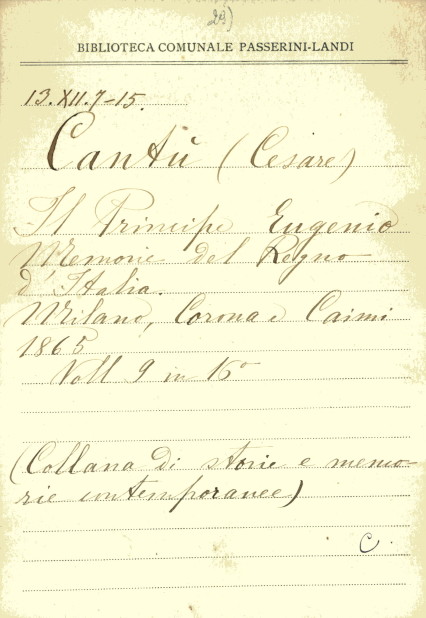 29)
BIBLIOTECA COMUNALE PASSERINI-LANDI
13.XII.7-15.
Cantù (Cesare)
Il Principe Eugenio
Memorie del Regno
d'Italia.
Milano, Corona e Caimi
1865
Voll 9 in 16°
(Collana di storie e memo-
rie contemporanee)
C.